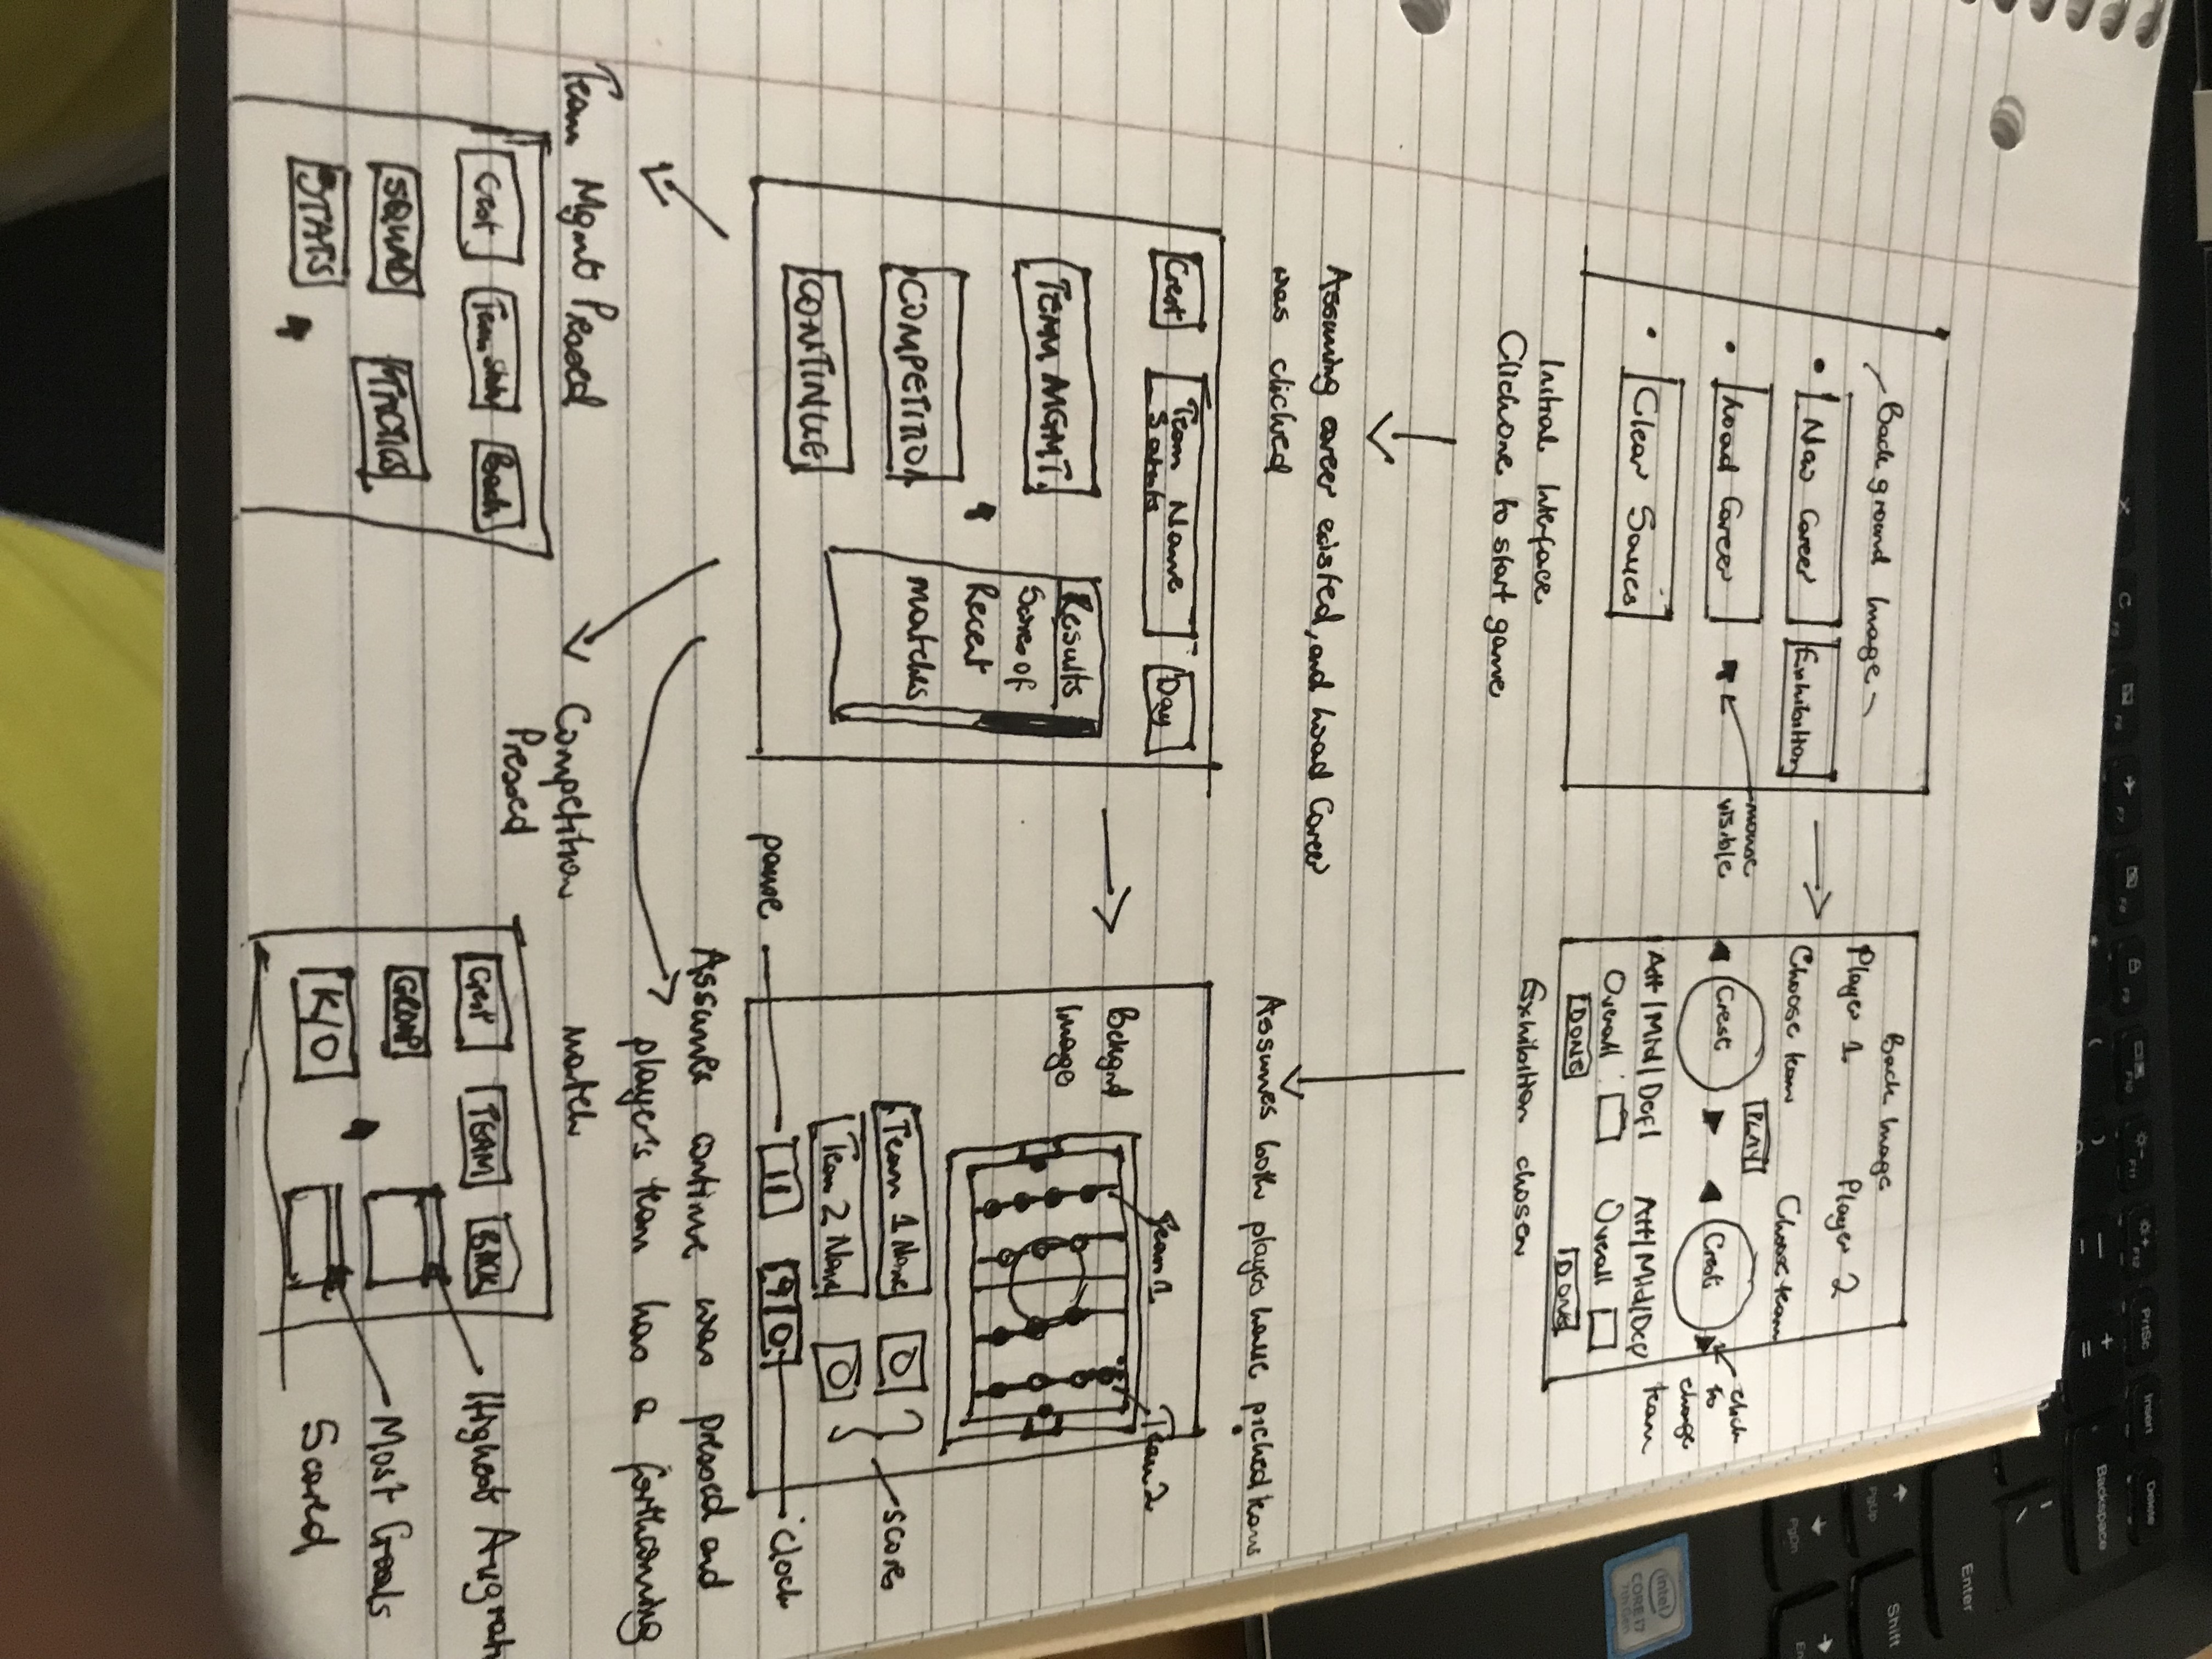 PrtSc
Insert
Delete
F5
F6
F7
F8
F9
F10
F11
F12
Backspace
Enter
Shift
PgUp
PgDn
intel
CORE i7
7th Gen
Back ground Image
New Career
Exhibition
Load Career
mouse
visible
Clear Saves
Initial Interface
Click one to start game
Back Image
Player 1
Player 2
Choose team
Choose team
PLAY
Crest
Crest
click
to
change
team
Att/Mid/Def/
Att/Mid/Def
Overall
Overall
DONE
DONE
Exhibition chosen
Assuming career existed, and Load Career
was clicked
Assumes both players have picked teams
Crest
Team Name
Day
TEAM MGMT.
Results
Scores of
Recent
matches
COMPETITION
CONTINUE
Team 1
Team 2
Bckgrd
Image
Team 1 Name
0
Team 2 Name
0
scores
pause
11
90
clock
Assumes continue was pressed and
player's team has a forthcoming
match
Team Mgmt Pressed
Competition
Pressed
Crest
Team Stats
Back
SQUAD
TACTICS
STATS
Crest
TEAM
BACK
GROUP
K/O
Highest Avg
Most Goals
Scored